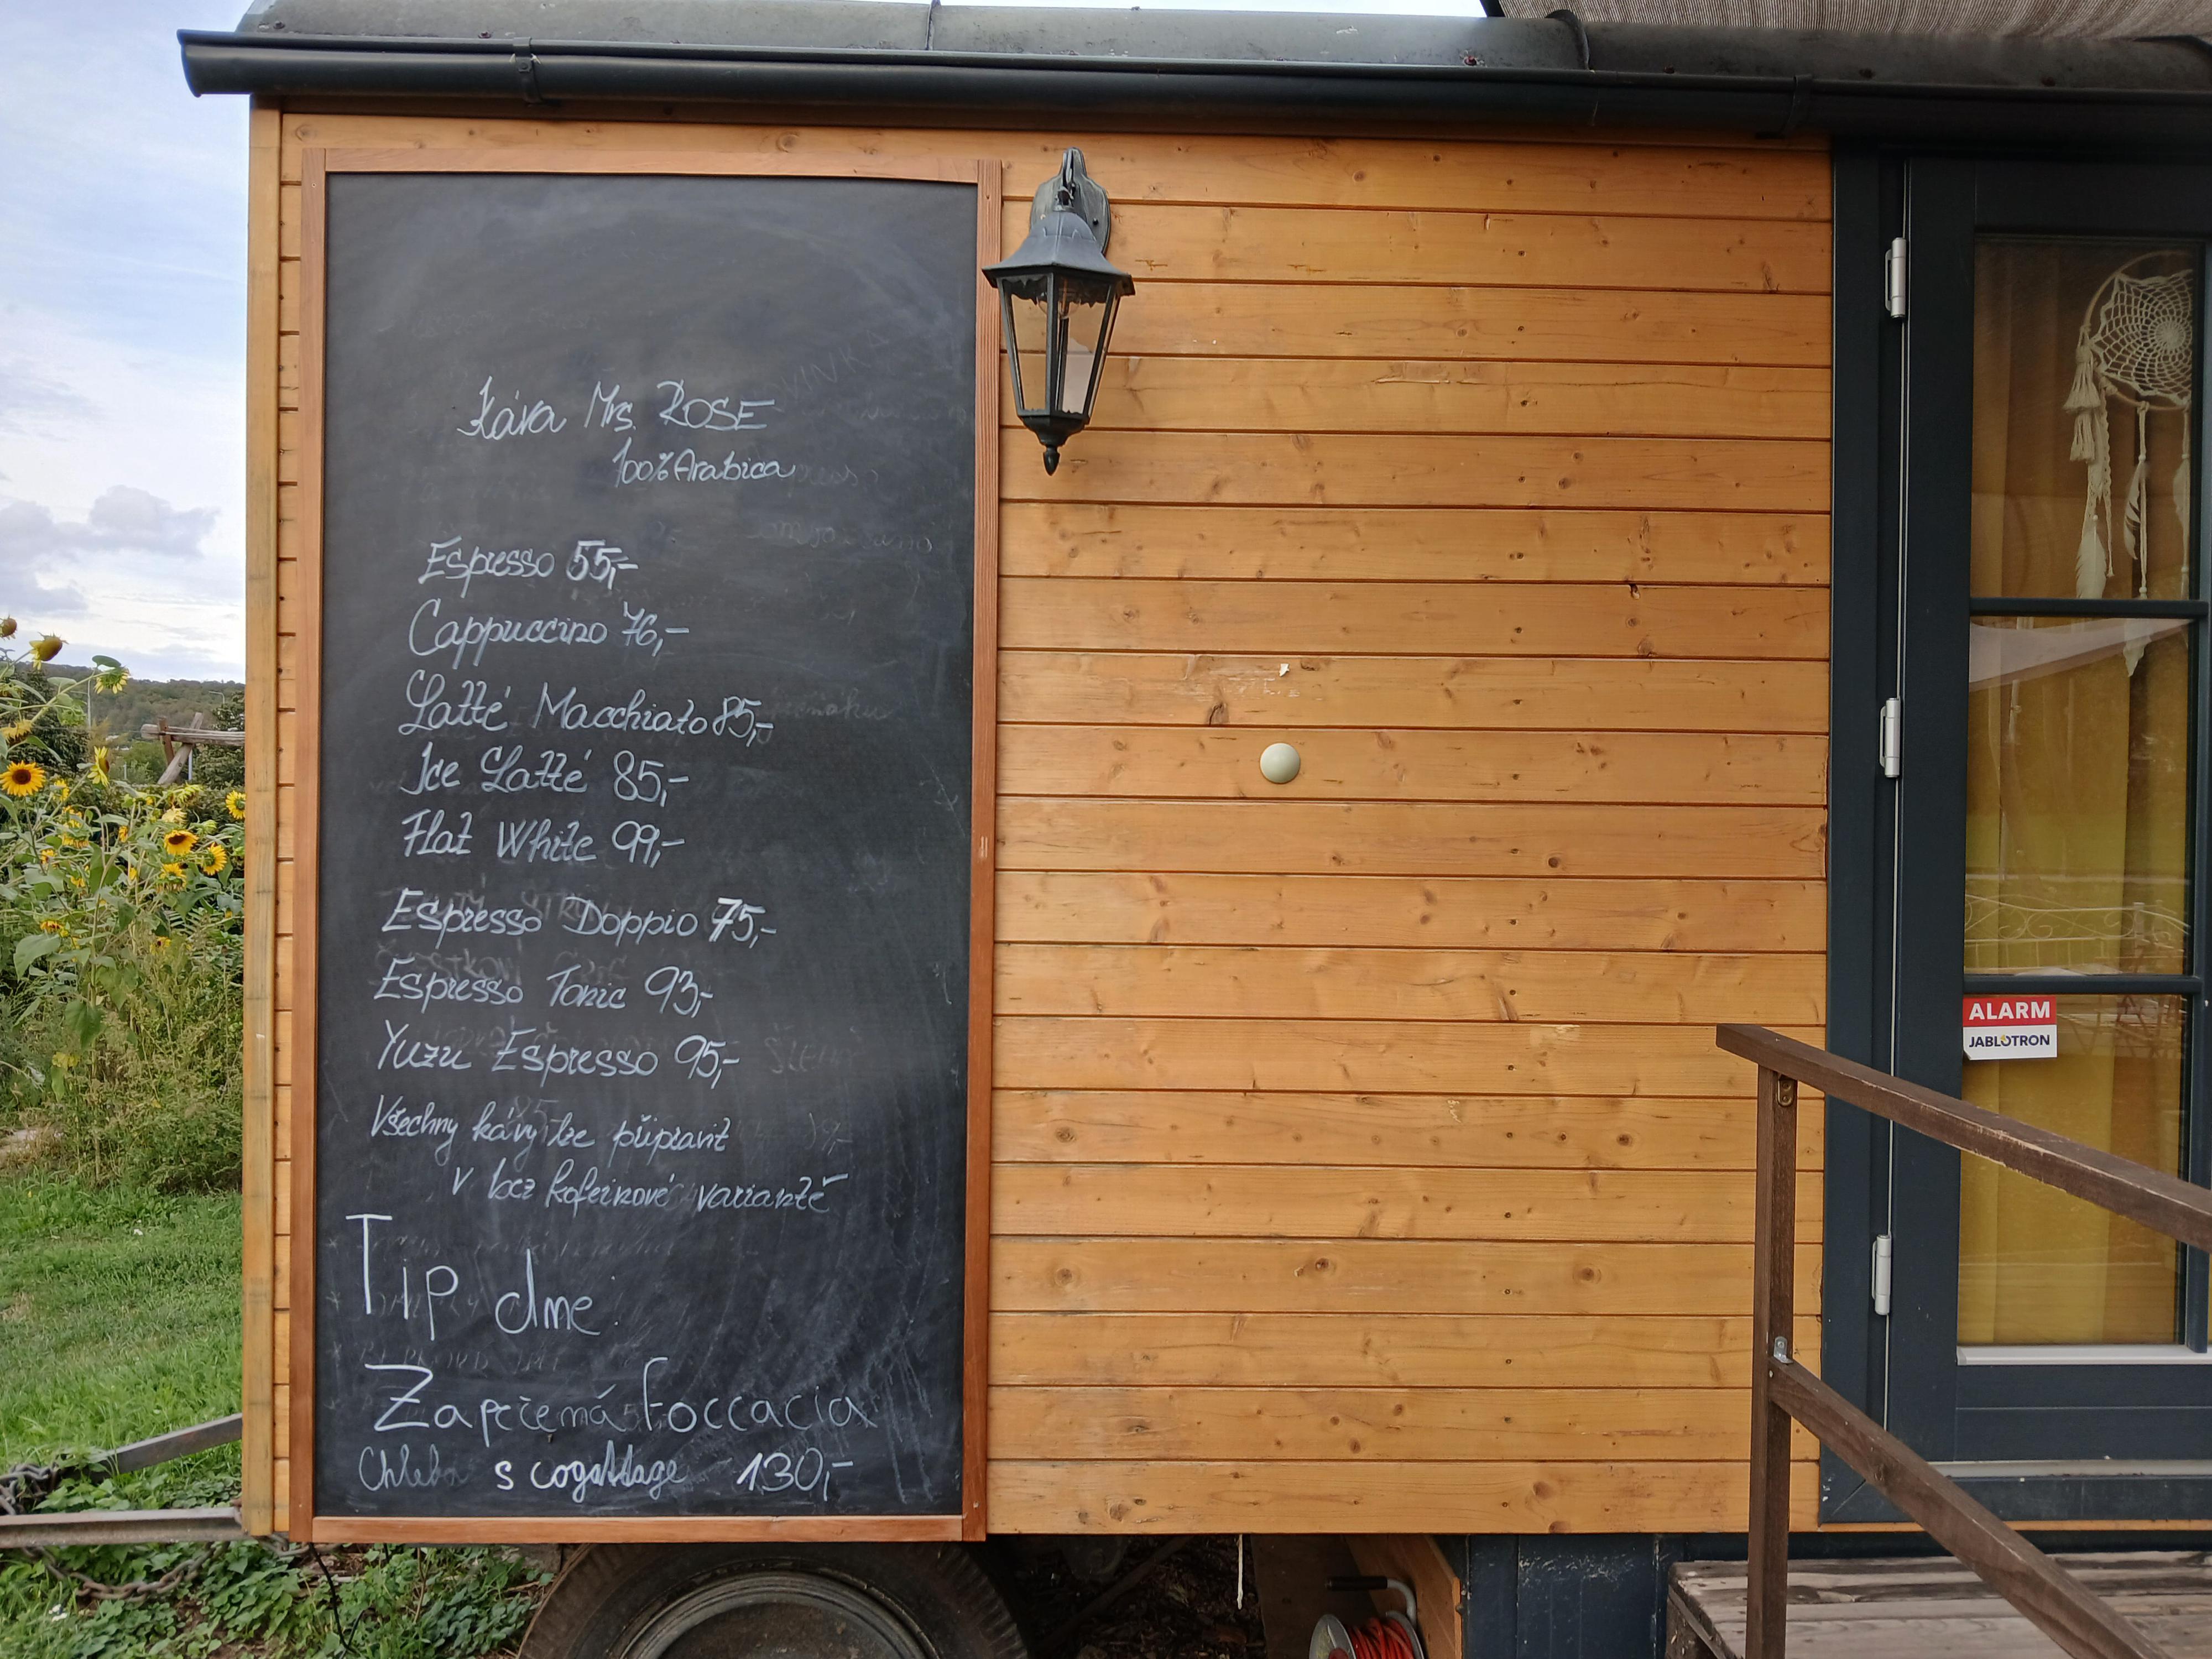 Káva Mrs. ROSE
100% Arabica
Espresso 55,-
Cappuccino 76,-
Latté Macchiato 85,-
Ice Latté 85,-
Flat White 99,-
Espresso Doppio 75,-
Espresso Tonic 93,-
Yuzu Espresso 95,-
Všechny kávy lze připravit
v bez kofeinové variantě
Tip dne:
Zapečená Foccacia
Chleba s 130,-
ALARM
JABLOTRON